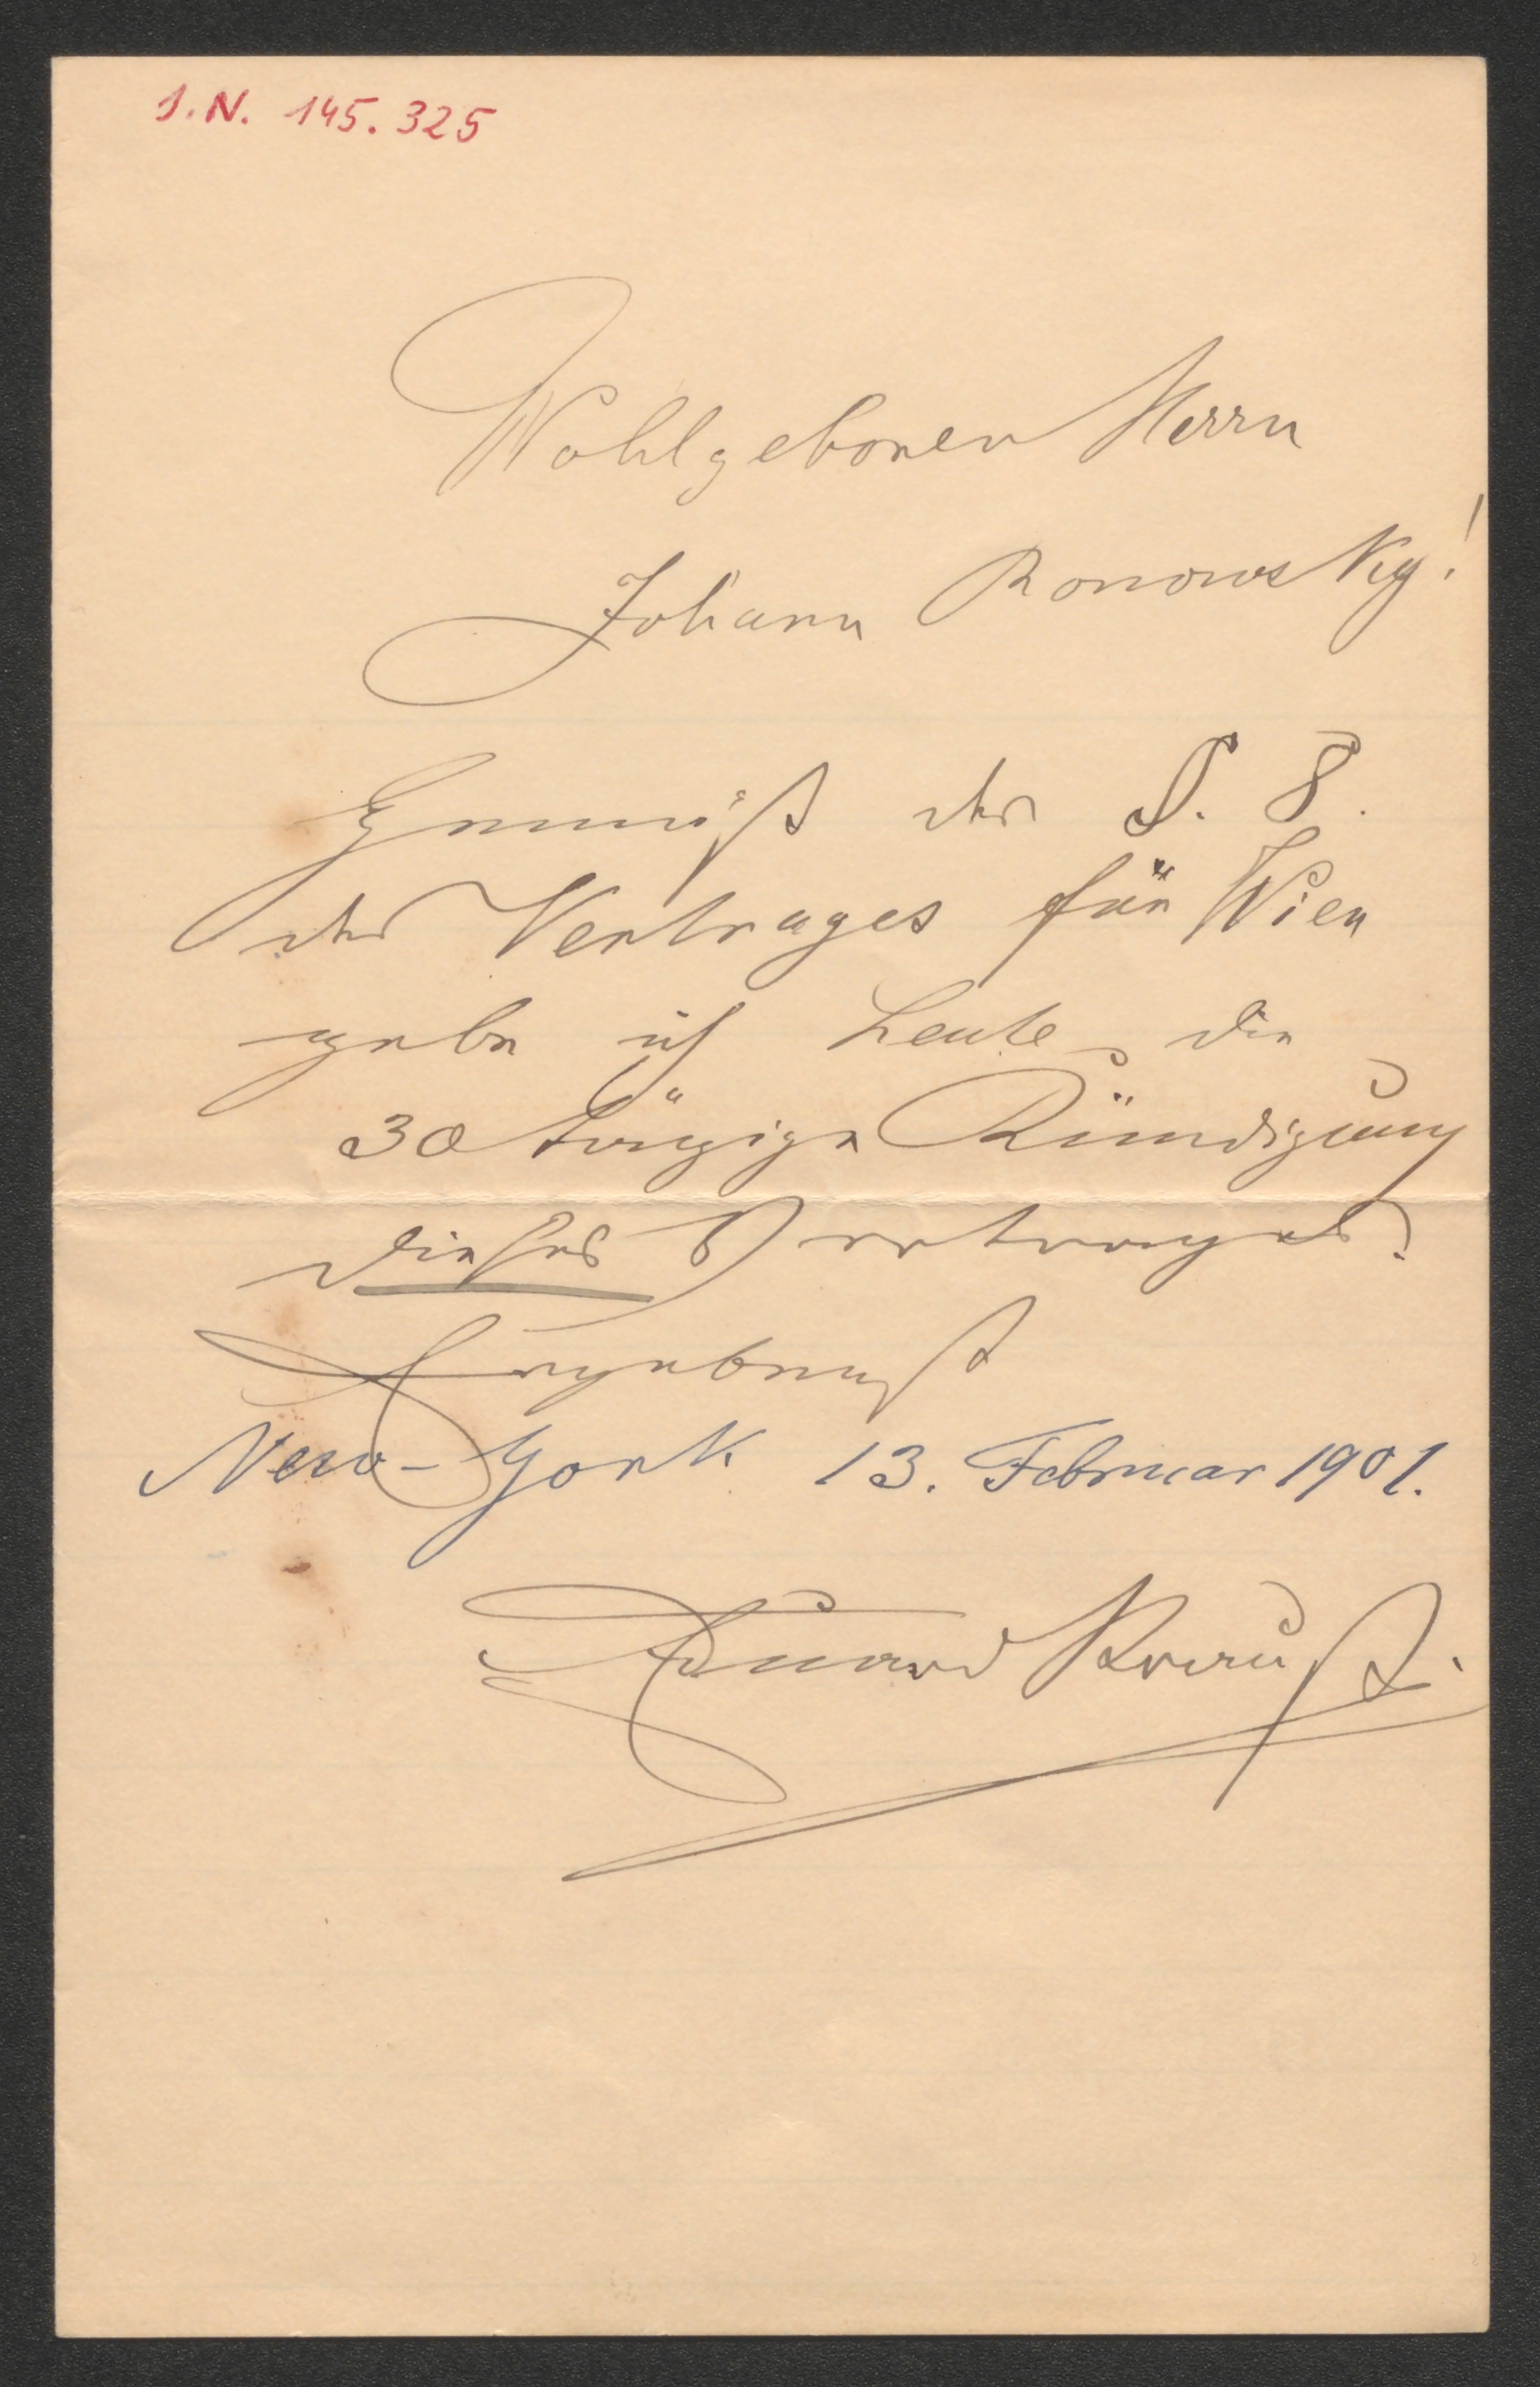 I.N. 145.325
Wohlgeboren Herrn
Johann Ronowsky!
Gemäß des §. 8.
des Vertrages für Wien
gebe ich heute die
30 tägige Kündigung
dieses Vertrages.
Ergebenst
New-York 13. Februar 1901.
Eduard Strauß.